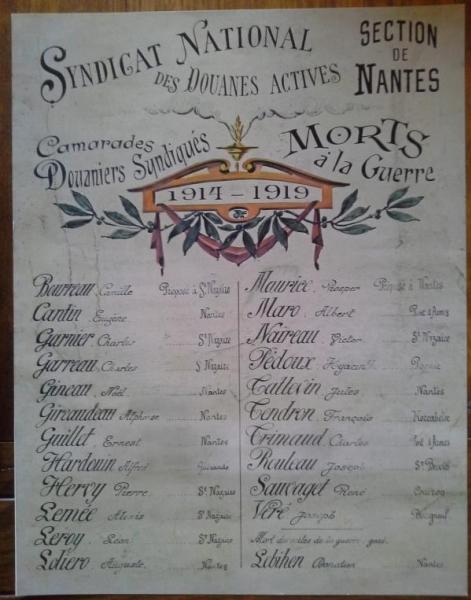 SYNDICAT NATIONAL
DES DOUANES ACTIVES
SECTION
DE
NANTES
Camarades
Douaniers Syndiqués
MORTS
à la Guerre
1914 - 1919
Bourreau Camille Préposé à St Nazaire
Cantin Eugène Nantes
Garnier Charles St Nazaire
Garreau Charles St Nazaire
Gineau Noël Nantes
Giraudeau Alphonse Nantes
Guillet Ernest Nantes
Hardouin Alfred Guérande
Hervy Pierre St Nazaire
Lemée Alexis St Nazaire
Leroy Léon St Nazaire
Loliero Auguste Nantes
Maurice Prosper Préposé à Nantes
Maro Albert
Noireau Victor St Nazaire
Pédoux Hyacinth
Tallevin Jules Nantes
Tendron François
Trimaud Charles
Rouleau Joseph
Sauvaget René
Véré Joseph
Mort des suites de la guerre
Lebihen Donatien Nantes